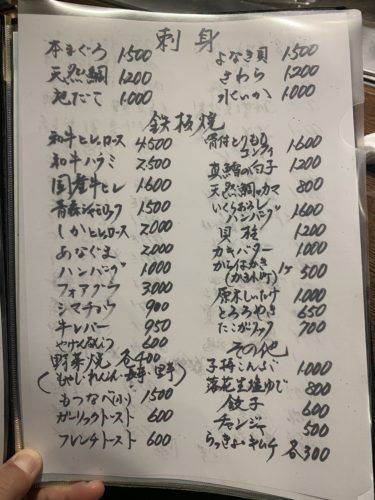 刺身
本まぐろ 1500
天然鯛 1200
池だこ 1000
よなき貝 1500
さわら 1200
水いか 1000
鉄板焼
和牛ヒレ,ロース 4500
和牛ハラミ 2500
国産牛ヒレ 1600
青森シャモロック 1500
しかヒレ,ロース 2000
あなぐま 2000
ハンバーグ 1000
フォアグラ 3000
シマチョウ 900
牛レバー 950
600
野菜焼 各400
(もやし・れんこん・長芋・里芋)
もつなべ(小) 1500
ガーリックトースト 600
フレンチトースト 600
骨付とりもも
コンフィ 1600
真鱈の白子 1200
天然鯛のカマ 800
いくらおろし
ハンバーグ 1600
貝柱 1200
カキバター 1000
からはかき
(かき小町) 1ケ 500
原木しいたけ 1000
とろろやき 650
たこガーリック 700
その他
子持こんぶ 1000
落花生塩ゆで 800
餃子 600
チャンジャー 500
らっきょ・キムチ 各300